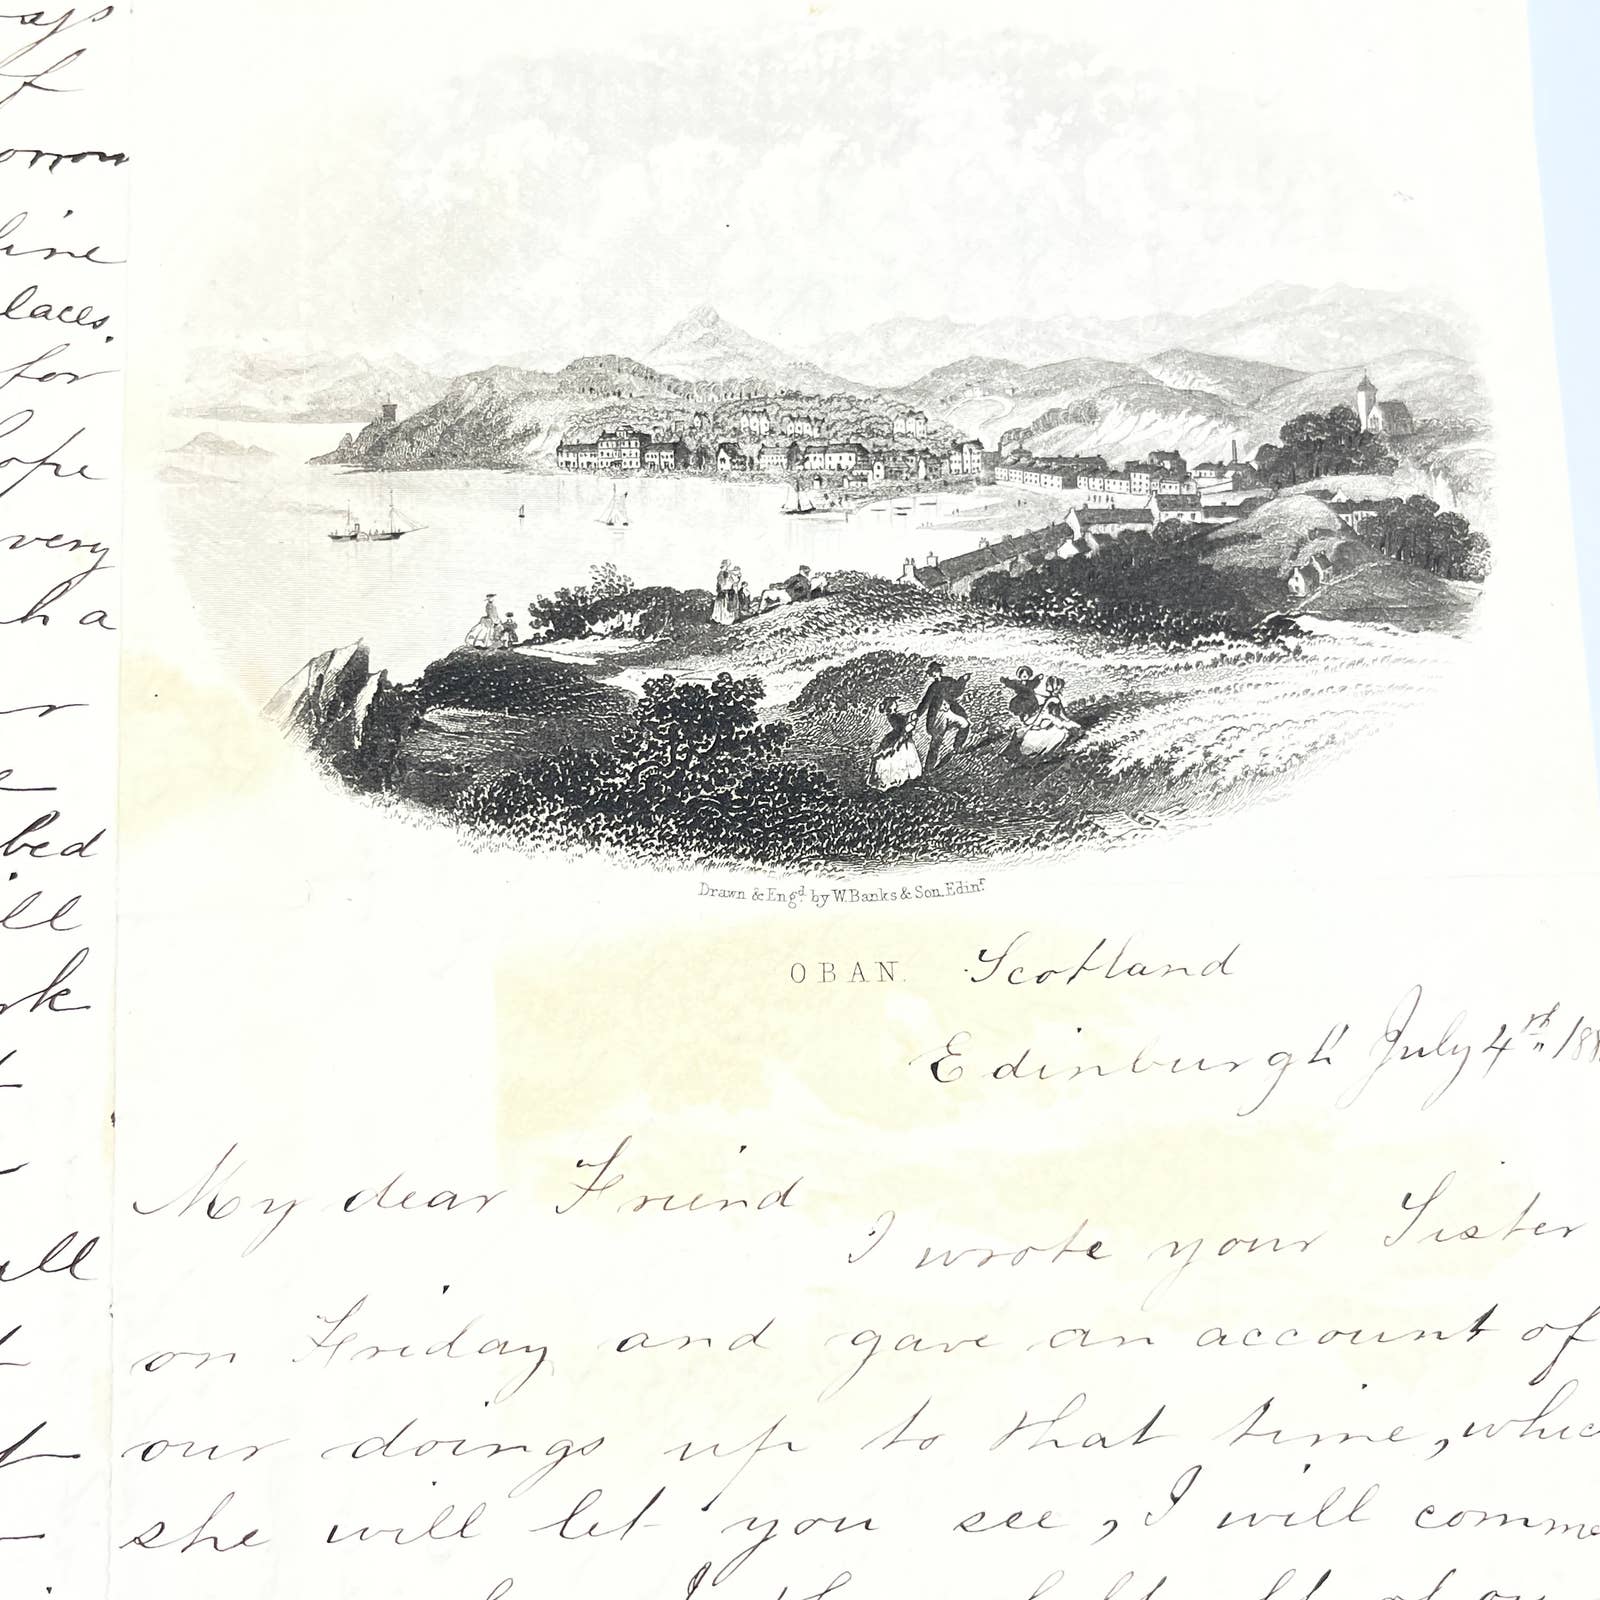 line
laces.
for
ope
very
ha
bed
ill
rk
all
Drawn & Engd. by W. Banks & Son. Edinr.
OBAN. Scotland
Edinburgh July 4th 188
My dear Friend
I wrote your Sister
on Friday and gave an account of
our doings up to that time, whic
she will let you see, I will comme